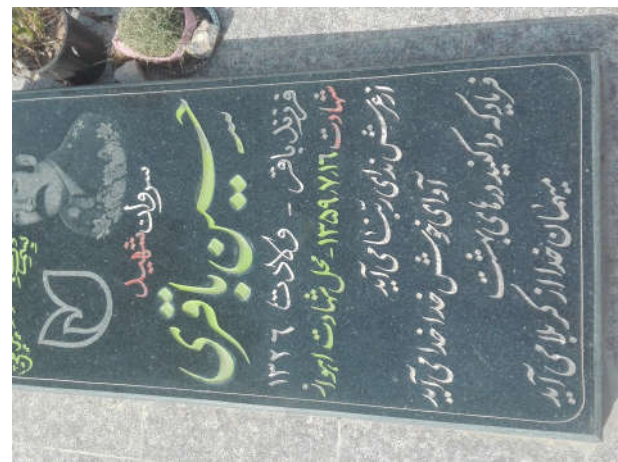 سروان شهید
حسین باقری
فرزند باقر - ولادت ۱۳۲۶
شهادت ۱۳۵۹/۷/۱۶ - محل شهادت اهواز
از عرش ندای ربنا می آید
آوای خوش خدا خدا می آید
فریاد که وا کنید درهای بهشت
میهمان خدا از کربلا می آید